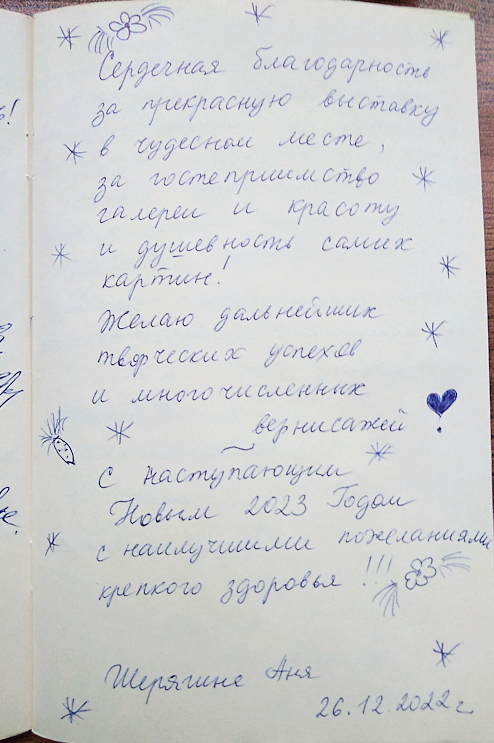 Сердечная благодарность
за прекрасную выставку
в чудесном месте,
за гостеприимство
галереи и красоту
и душевность самих
картин!
Желаю дальнейших
творческих успехов
и многочисленных
вернисажей
с наступающим
Новым 2023 Годом
с наилучшими пожеланиями
крепкого здоровья !!!
Аня
26.12.2022 г.